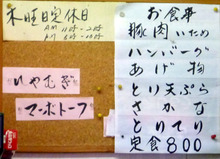 木曜日定休日
AM 11時-2時
PM 5時-10時
ひやむぎ
マーボトーフ
お食事
豚肉いため
ハンバーグ
あげ物
とり天ぷら
さかな
とりてり
定食800